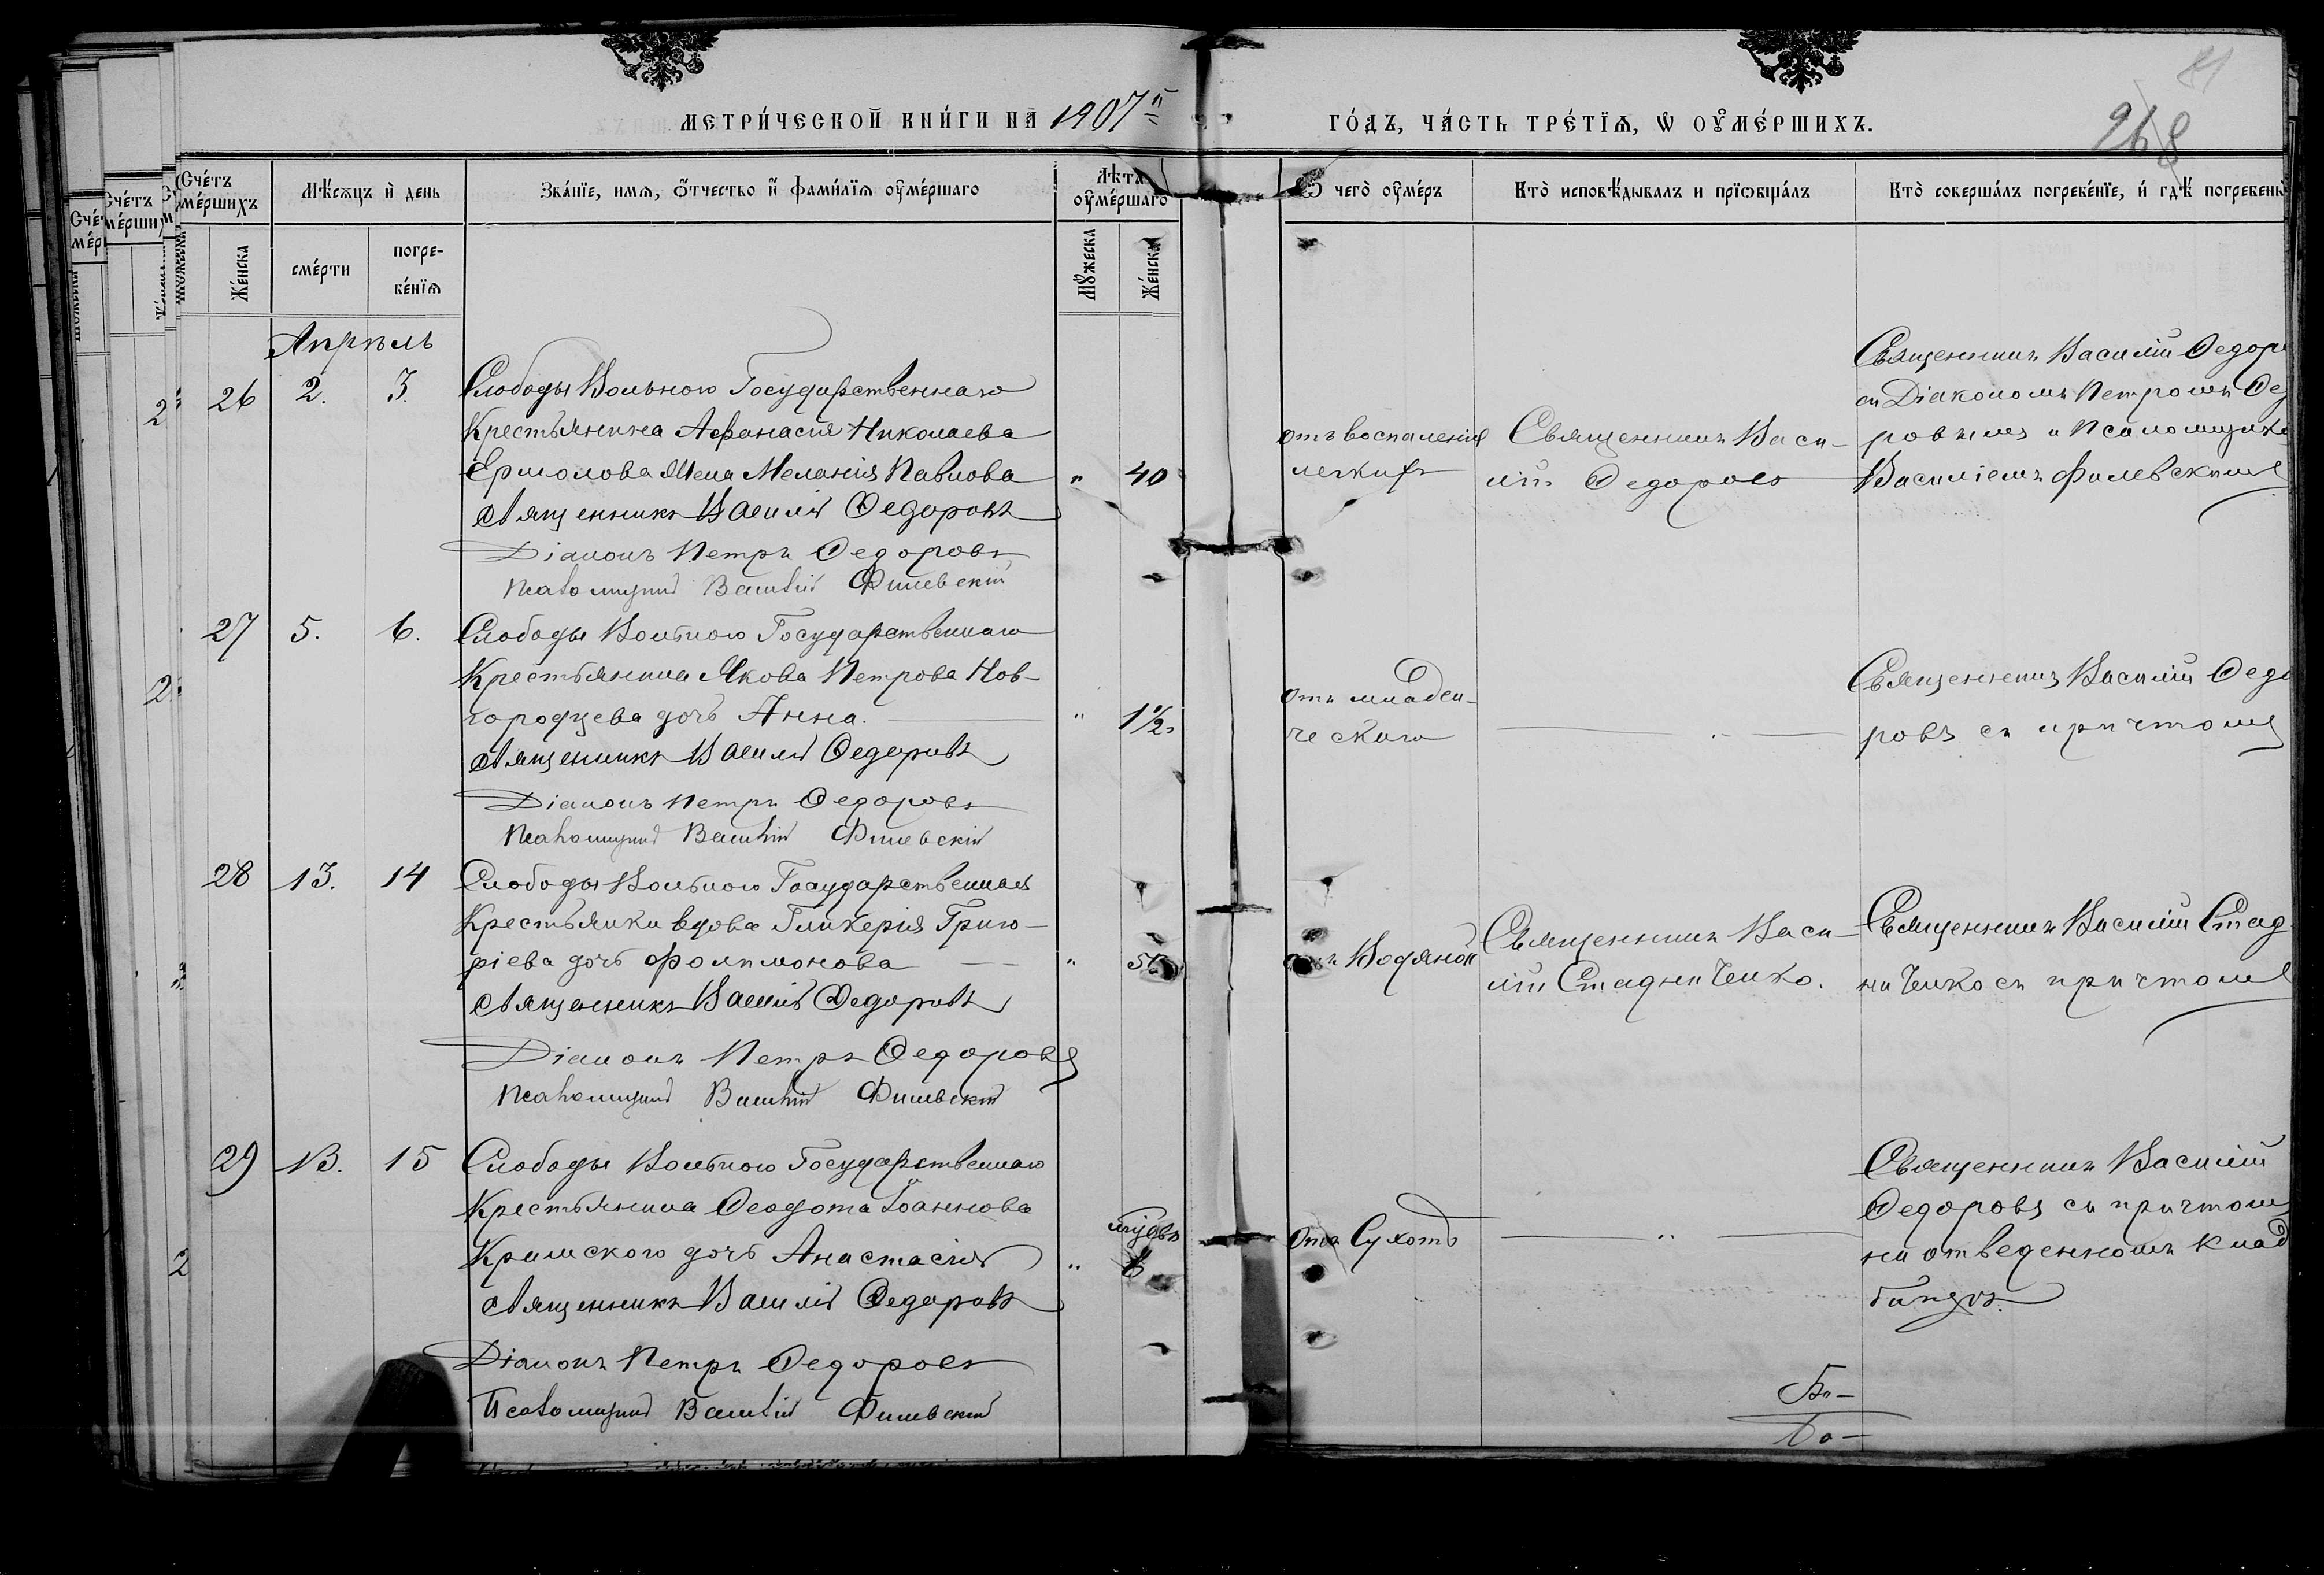 МЕТРИ́ЧЕСКОЙ КНИ́ГИ НА 1907й ГО́ДЪ, ЧА́СТЬ ТРЕ́ТІѦ, Ѡ ОУМЕ́РШИХЪ.
268
Сче́тъ оумершихъ
Мѣсѧцъ и день
Зва́нїе, имѧ, ѻтчество и фами́лїѧ оуме́ршаго
Лѣта оуме́ршаго
Ѿ чего̀ оуме́ръ
Кто̀ исповѣдывалъ и прїѡбща́лъ
Кто̀ соверша́лъ погребе́нїе, и гдѣ погребены
Же́нска
сме́рти
погребе́нїѧ
Мꙋжеска
Же́нска
Апрѣль
26 2. 3.
Слободы Вольного Государственнаго
Крестьянина Афанасия Николаева
Ермолова Жена Меланія Павлова " 40
Священникъ Василій Федоровъ
Діаконъ Петръ Федоровъ
Псаломщикъ Василій Филевскій
отъ воспаленія
легкихъ
Священникъ Васи-
лій Федоровъ
Священникъ Василій Федоро
съ Діакономъ Петромъ Фед
ровымъ и Псаломщико
Василіемъ Филевскимъ
27 5. 6.
Слободы Вольного Государственнаго
Крестьянина Якова Петрова Нов-
городцева дочь Анна. " 1½
Священникъ Василій Федоровъ
Діаконъ Петръ Федоровъ
Псаломщикъ Василій Филевскій
отъ младен-
ческаго
Священникъ Василій Федо
ровъ съ причтомъ
28 13. 14
Слободы Вольного Государственная
Крестьянки вдова Гликерія Григо-
ріева дочь Филимонова "
Священникъ Василій Федоровъ
Діаконъ Петръ Федоровъ
Псаломщикъ Василій Филевскій
отъ Водяной
Священникъ Васи-
лій Стадниченко.
Священникъ Василій Стад
ниченко съ причтомъ
29 13. 15
Слободы Вольного Государственнаго
Крестьянина Феодота Іоаннова
Крамского дочь Анастасія " 6
Священникъ Василій Федоровъ
Діаконъ Петръ Федоровъ
Псаломщикъ Василій Филевскій
Отъ Сухотъ
Священникъ Василій
Федоровъ съ причтомъ
на отведенномъ клад
бищѣ.